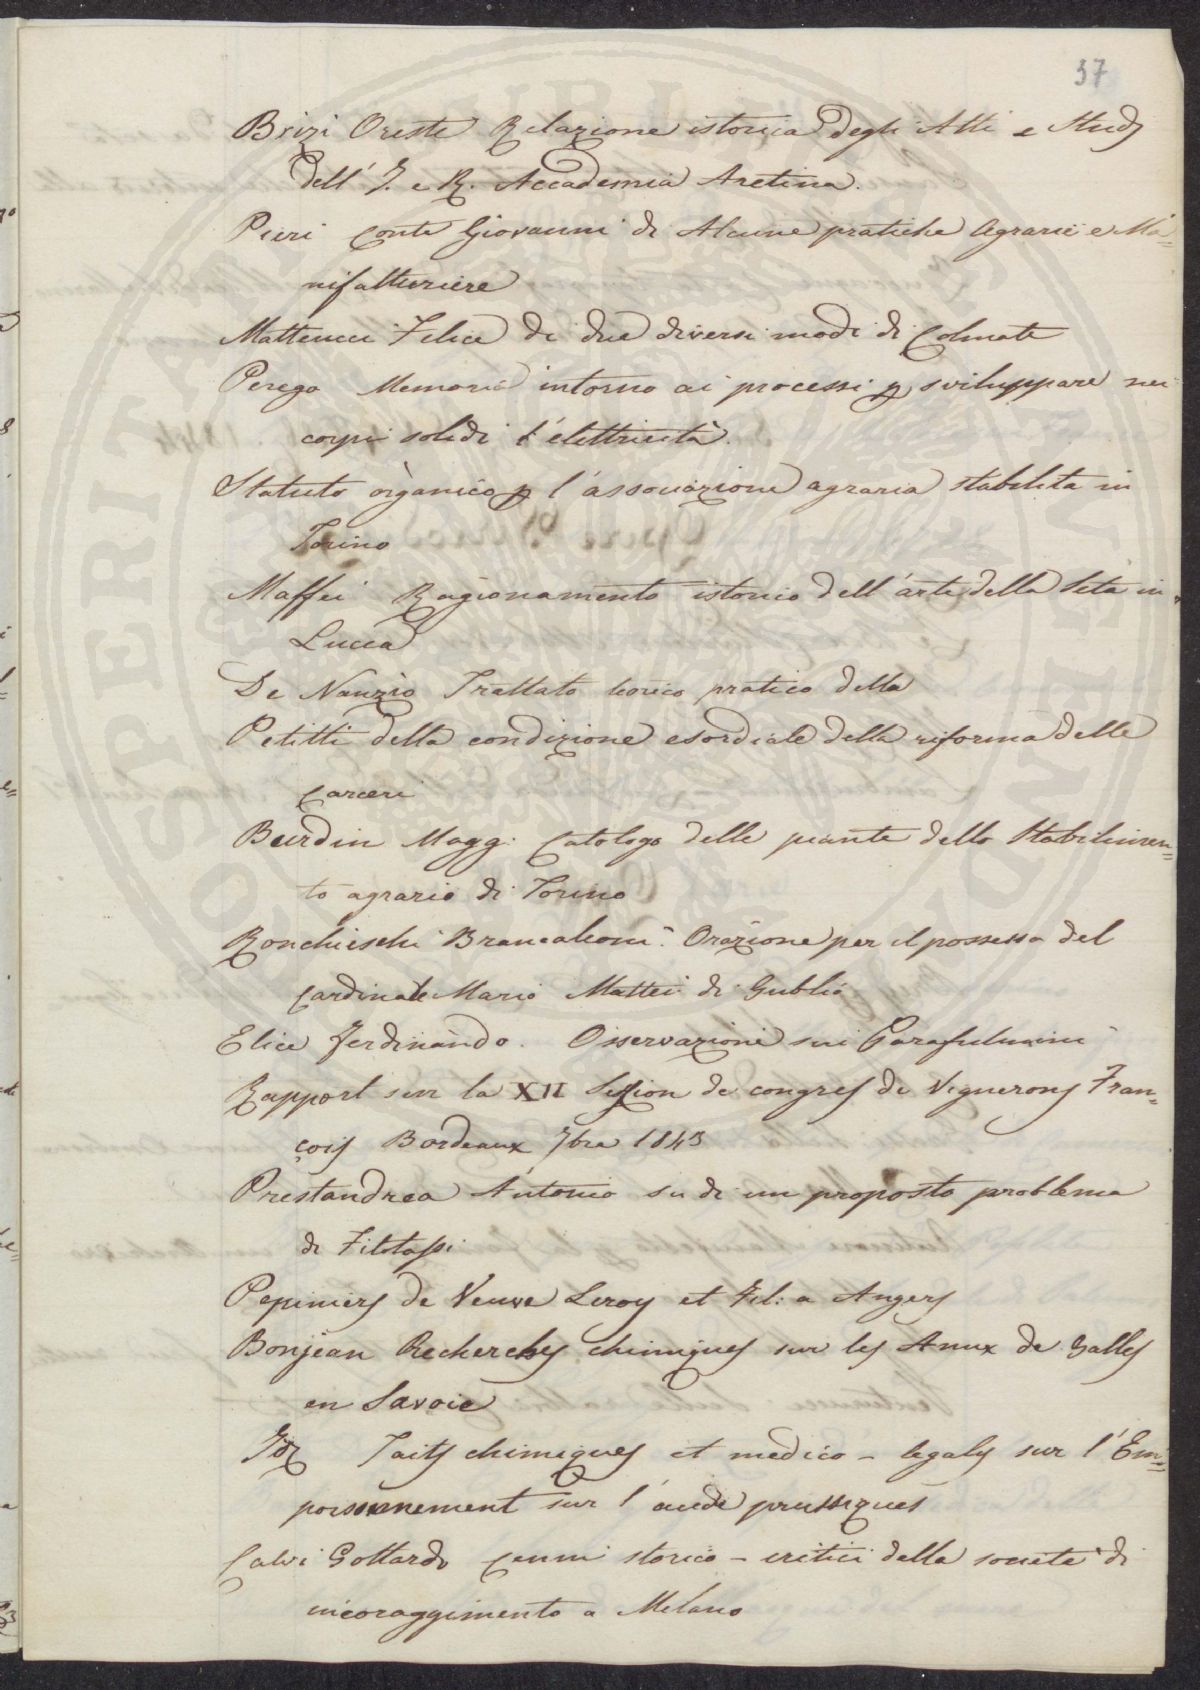 37
Brizi Oreste Relazione istorica degli Atti e Studj
dell' I. e R. Accademia Aretina.
Pieri Conte Giovanni di Alcune pratiche Agrarie e Ma=
nifatturiere
Matteucci Felice di due diversi modi di Colmate
Perego Memoria intorno ai processi p sviluppare nei
corpi solidi l'elettricità.
Statuto organico p l'associazione agraria stabilita in
Torino
Maffei Ragionamento istorico dell'arte della Seta in
Lucca
De Nanzio Trattato teorico pratico della
Petitti della condizione esordiale della riforma delle
Carceri
Burdin Magg: Catologo delle piante dello Stabilimen=
to agrario di Torino
Ronchieschi Brancaleoni. Orazione per il possesso del
Cardinale Mario Mattei di Gubbio
Elice Ferdinando. Osservazioni sui Parafulmini
Rapport sur la XII Session de congres de Vignerons Fran=
çois Bordeaux 7bre 1843
Prestandrea Antonio su di un proposto problema
di Fitotassi
Pepiniers de Veuve Leroy et Fil: a Angers
Bonjean Recherches chimiques sur les Anux de Salles
en Savoie
Faits chimiques et medico - legals sur l'Em=
poisonnement sur l'acide prussiques
Calvi Gottardo Cenni storico - critici della società di
incoraggimento a Milano
SPERITATIS BIBLI